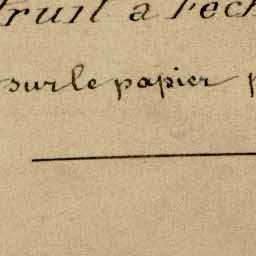 truit à l'éch
sur le papier p